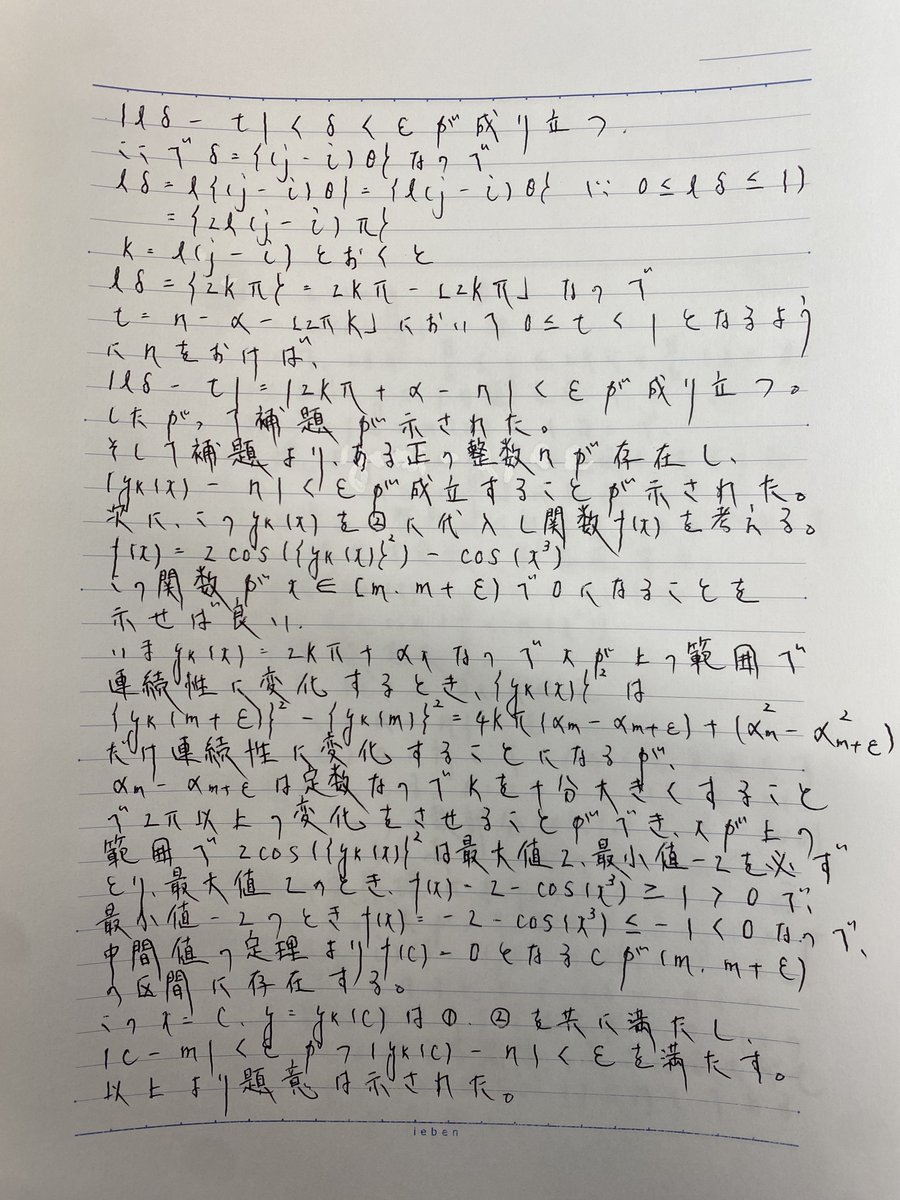 |lδ - t| < δ < ε が成り立つ.
ここで δ = {(j - i)θ} なので
lδ = l{(j - i)θ} = {l(j - i)θ} (∵ 0 ≤ lδ ≤ 1)
= {2l(j - i)π}
k = l(j - i) とおくと
lδ = {2kπ} = 2kπ - ⌊2kπ⌋ なので
t = n - α - ⌊2πk⌋ において 0 ≤ t < 1 となるよう
に n をおけば、
|lδ - t| = |2kπ + α - n| < ε が成り立つ。
したがって補題が示された。
そして補題より、ある正の整数 n が存在し、
|yk(x) - n| < ε が成立することが示された。
次に、この yk(x) を②に代入し関数 f(x) を考える。
f(x) = 2cos({yk(x)}²) - cos(x³)
この関数が x ∈ (m, m + ε) で 0 になることを
示せば良い.
いま yk(x) = 2kπ + αx なので x が上の範囲で
連続性に変化するとき、{yk(x)}² は
{yk(m + ε)}² - {yk(m)}² = 4kπ(αm - αm+ε) + (αm² - αm+ε²)
だけ連続性に変化することになるが、
αm - αm+ε は定数なので k を十分大きくすること
で 2π 以上の変化をさせることができ、x が上の
範囲で 2cos({yk(x)}² は最大値 2、最小値 -2 を必ず
とり、最大値 2 のとき、f(x) - 2 - cos(x³) ≥ 1 > 0 で、
最小値 -2 のとき f(x) = -2 - cos(x³) ≤ -1 < 0 なので、
中間値の定理より f(c) = 0 となる c が (m, m + ε)
の区間に存在する。
この x = c, y = yk(c) は①, ②を共に満たし、
|c - m| < ε かつ |yk(c) - n| < ε を満たす。
以上より題意は示された。
ieben